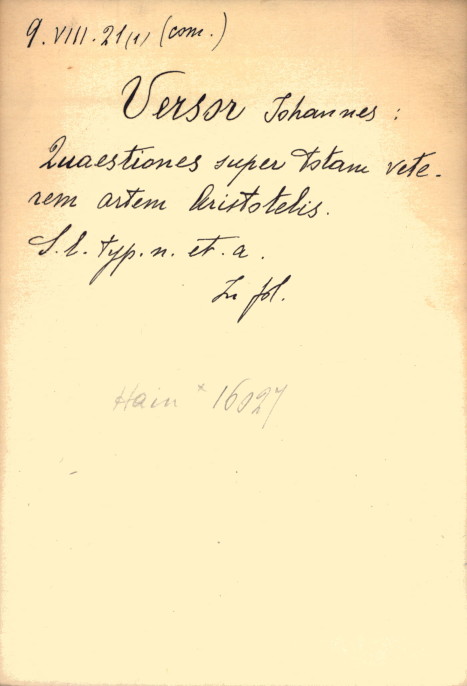 9. VIII. 21(1) (com.)
Versor Johannes :
Quaestiones super totam vete-
rem artem Aristotelis.
S. l. typ. n. et. a.
In fol.
Hain * 16027